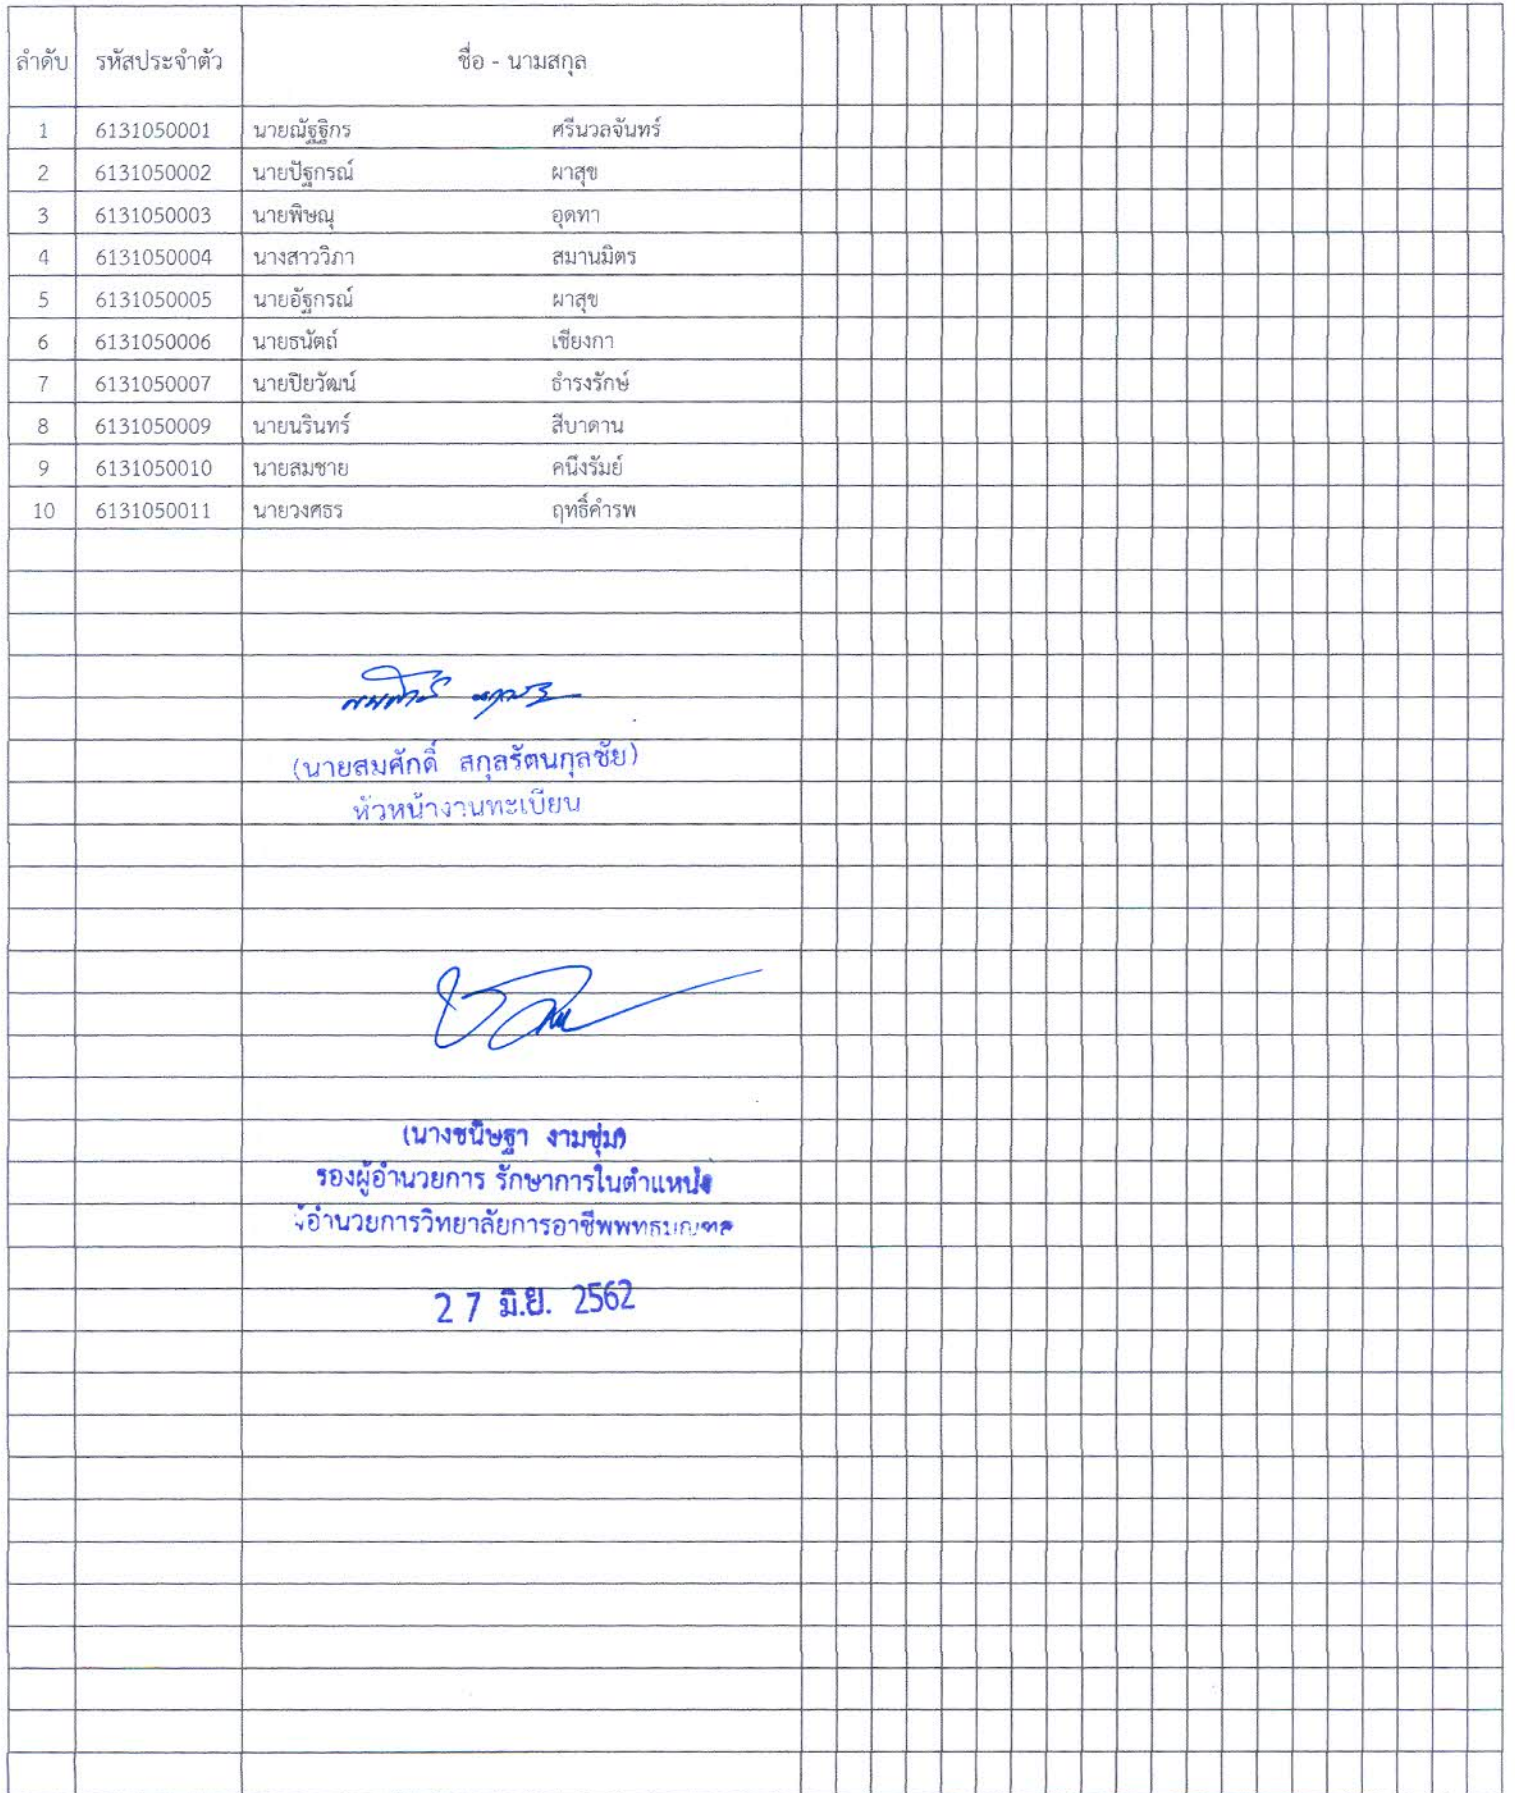 ลำดับ รหัสประจำตัว ชื่อ - นามสกุล
1 6131050001 นายณัฐฐิกร ศรีนวลจันทร์
2 6131050002 นายปัฐกรณ์ ผาสุข
3 6131050003 นายพิษณุ อุดทา
4 6131050004 นางสาววิภา สมานมิตร
5 6131050005 นายอัฐกรณ์ ผาสุข
6 6131050006 นายธนัตถ์ เชียงกา
7 6131050007 นายปิยวัฒน์ ธำรงรักษ์
8 6131050009 นายนรินทร์ สีบาดาน
9 6131050010 นายสมชาย คนึงรัมย์
10 6131050011 นายวงศธร ฤทธิ์คำรพ
(นายสมศักดิ์ สกุลรัตนกุลชัย)
หัวหน้างานทะเบียน
(นางชนิษฐา งามชุ่ม)
รองผู้อำนวยการ รักษาการในตำแหน่ง
ผู้อำนวยการวิทยาลัยการอาชีพพุทธมณฑล
27 มิ.ย. 2562